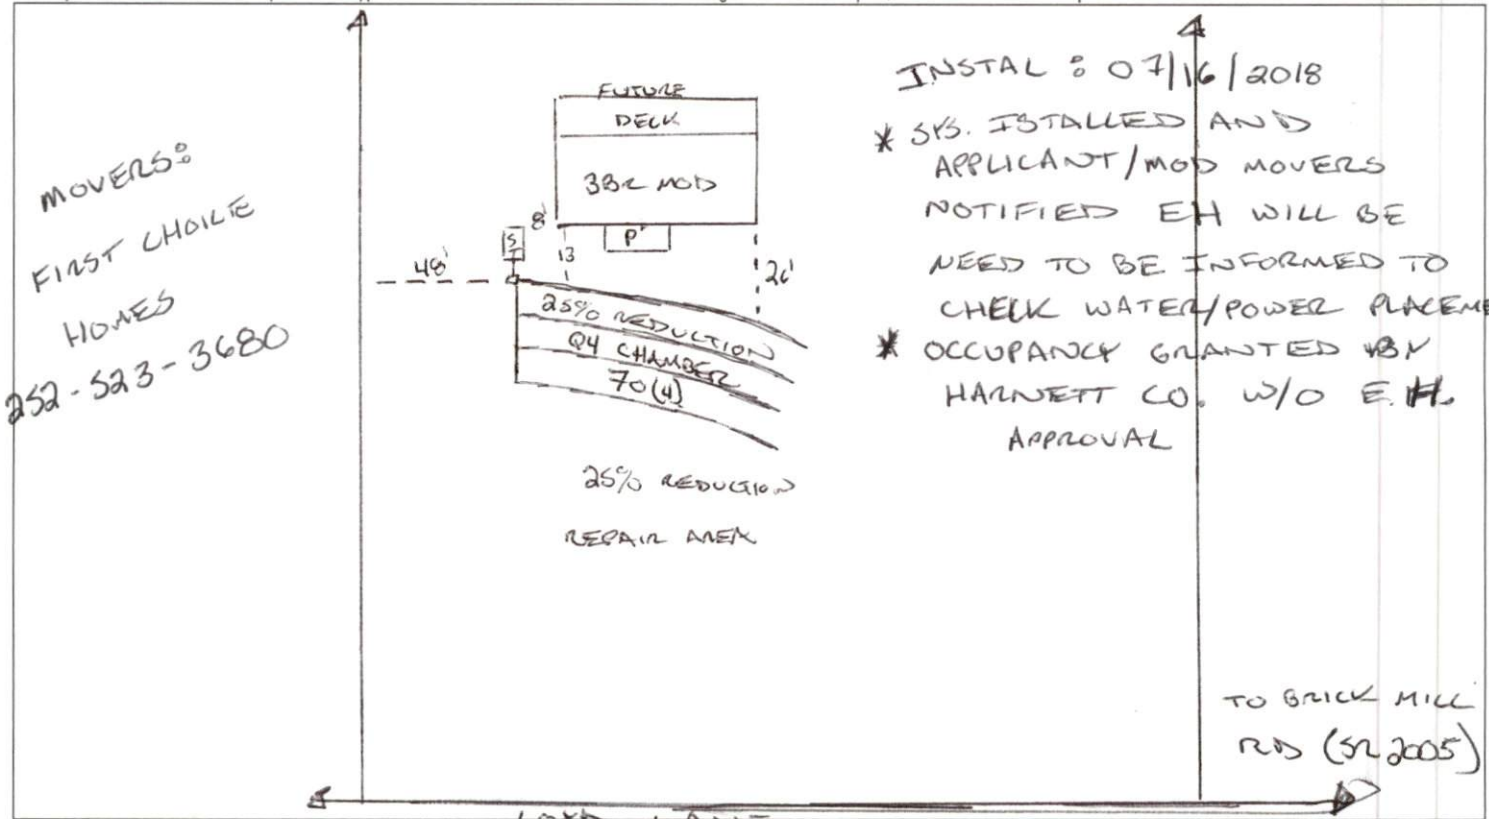 MOVERS:
FIRST CHOICE
HOMES
252-523-3680
FUTURE
DECK
3BR MOD
P
8'
S
T
13
48'
26'
25% REDUCTION
Q4 CHAMBER
70(4)
25% REDUCTION
REPAIR AREA
INSTAL : 07/16/2018
* SYS. ISTALLED AND
APPLICANT/MOD MOVERS
NOTIFIED EH WILL BE
NEED TO BE INFORMED TO
CHECK WATER/POWER PLACEME
* OCCUPANCY GRANTED BY
HARNETT CO. W/O E.H.
APPROVAL
TO BRICK MILL
RD (SR 2005)